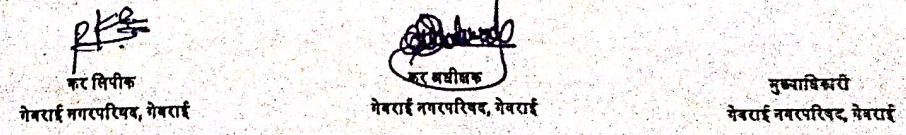 कर लिपीक
गेवराई नगरपरिषद, गेवराई
कर अधीक्षक
गेवराई नगरपरिषद, गेवराई
मुख्याधिकारी
गेवराई नगरपरिषद, गेवराई